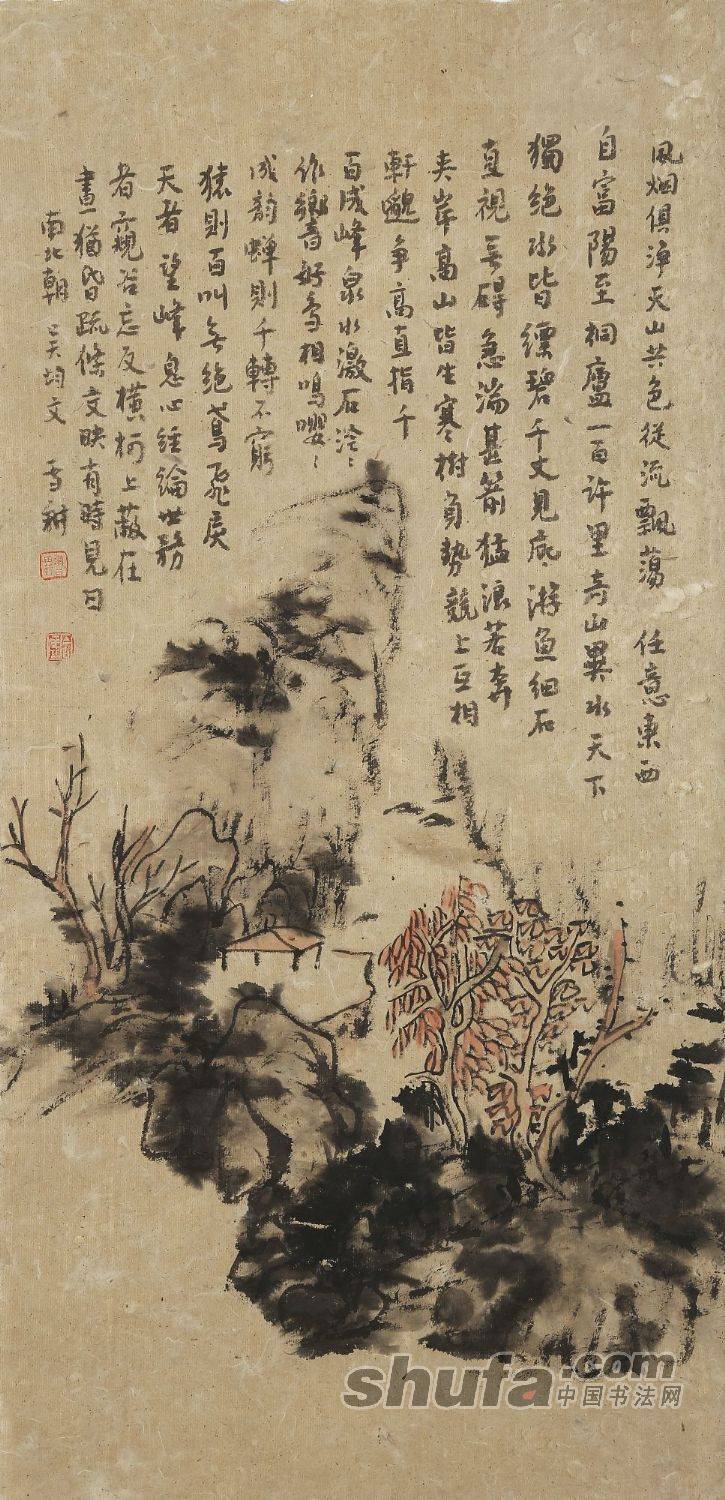 風烟俱淨天山共色從流飄蕩任意東西
自富陽至桐廬一百許里奇山異水天下
獨絶水皆縹碧千丈見底游魚細石
直視無碍急湍甚箭猛浪若奔
夹岸高山皆生寒樹負勢競上互相
軒邈争高直指千
百成峰泉水激石泠〻
作響好鸟相鳴嚶〻
成韵蟬則千轉不窮
猿則百叫無絶鳶飛戾
天者望峰息心經綸世務
者窺谷忘反横柯上蔽在
晝猶昏疏條交映有時見日
南北朝吴均文
shufa.com
中国书法网